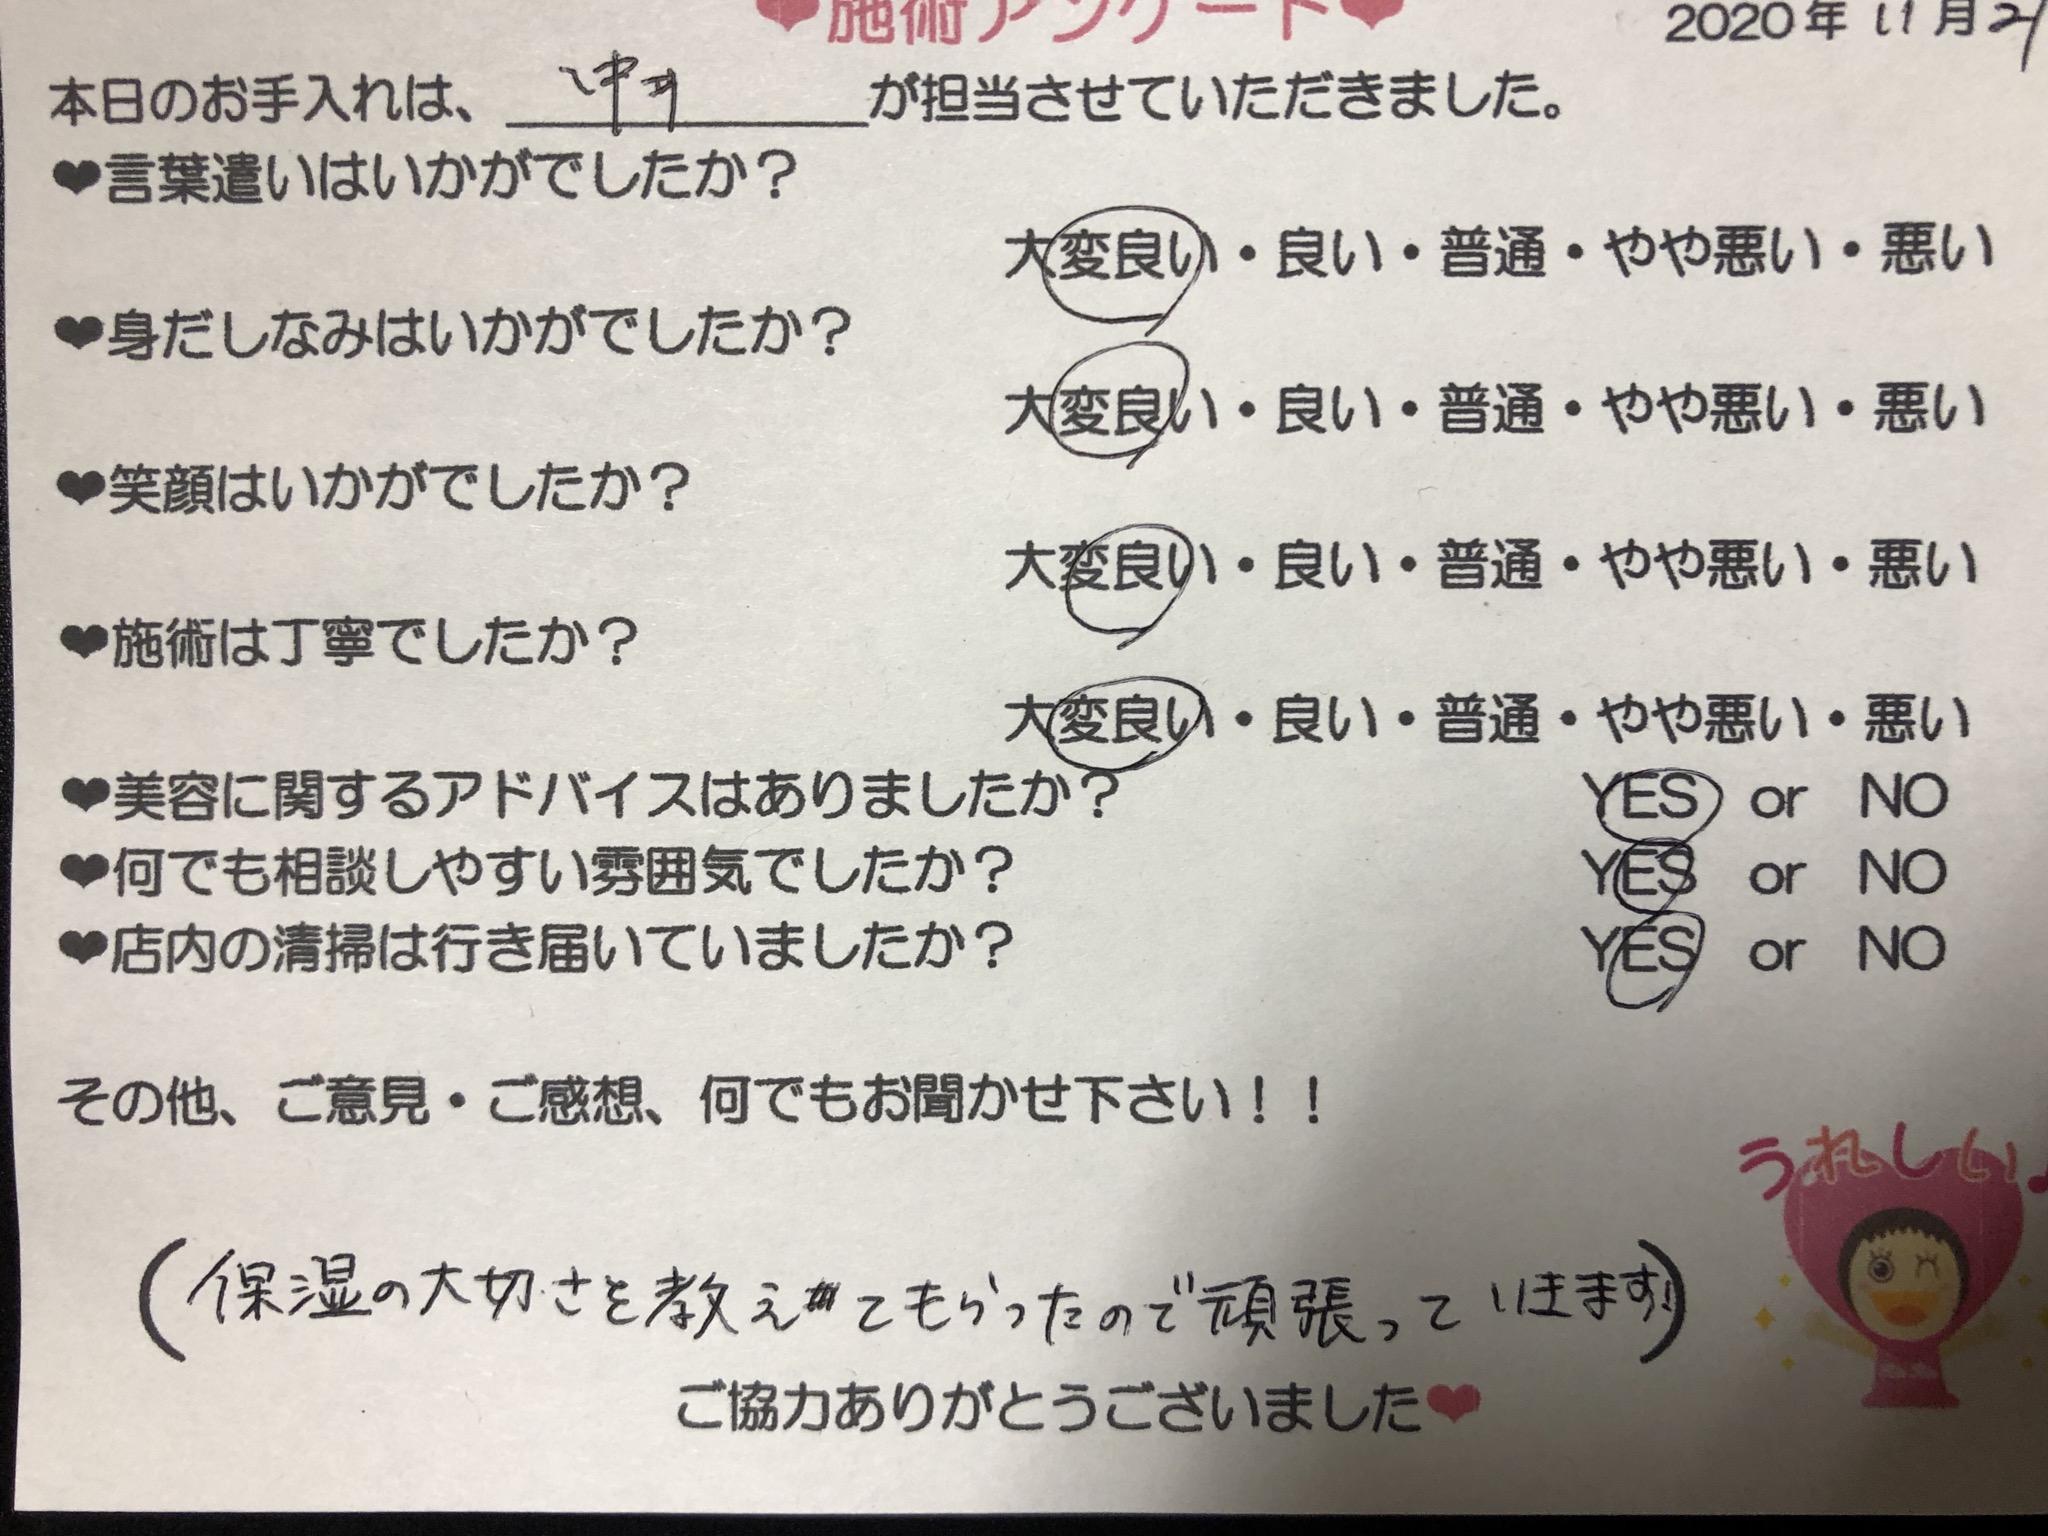 ❤施術アンケート❤
2020年 11月21
本日のお手入れは、が担当させていただきました。
❤言葉遣いはいかがでしたか？
大変良い・良い・普通・やや悪い・悪い
❤身だしなみはいかがでしたか？
大変良い・良い・普通・やや悪い・悪い
❤笑顔はいかがでしたか？
大変良い・良い・普通・やや悪い・悪い
❤施術は丁寧でしたか？
大変良い・良い・普通・やや悪い・悪い
❤美容に関するアドバイスはありましたか？ YES or NO
❤何でも相談しやすい雰囲気でしたか？ YES or NO
❤店内の清掃は行き届いていましたか？ YES or NO
その他、ご意見・ご感想、何でもお聞かせ下さい！！
うれしい♪
(保湿の大切さを教えてもらったので頑張っていきます!)
ご協力ありがとうございました❤